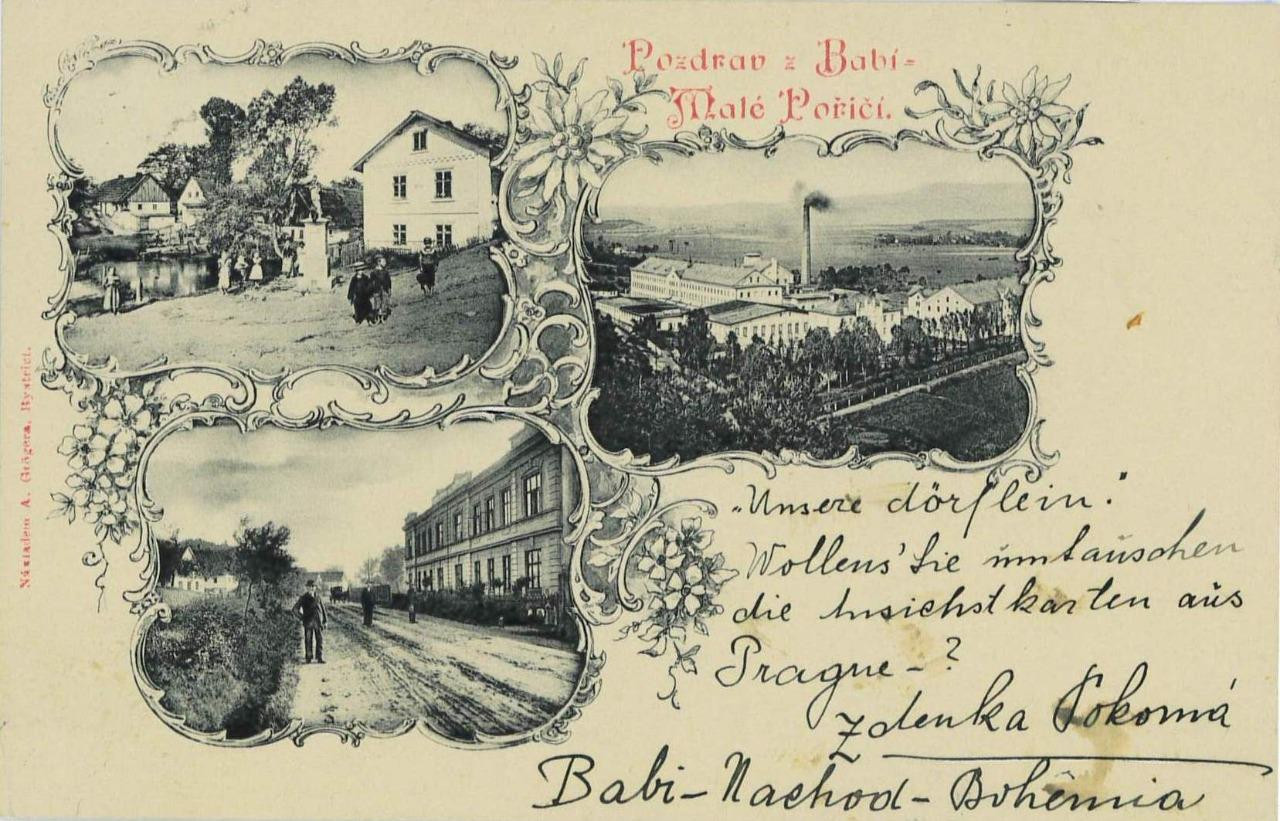 Pozdrav z Babí-
Malé Poříčí.
Nákladem A. Grögera, Bystřici.
„Unsere dörflein."
Wollens' Sie umtauschen
die Ansichstkarten aus
Prague-?
Zdenka Pokorná
Babi-Nachod-Bohêmia